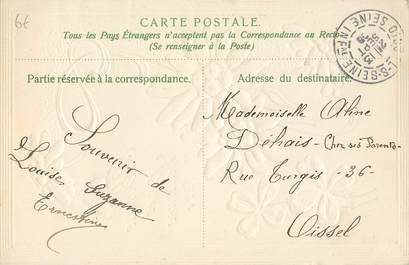 6€
CARTE POSTALE.
Tous les Pays Étrangers n'acceptent pas la Correspondance au Recto
(Se renseigner à la Poste)
Partie réservée à la correspondance.
Souvenir de
Louise, Suzanne
Ernestine
Adresse du destinataire.
Mademoiselle Aline
Déhais - Chez ses Parents -
Rue Turgis - 36 -
Oissel
SEINE INFRE